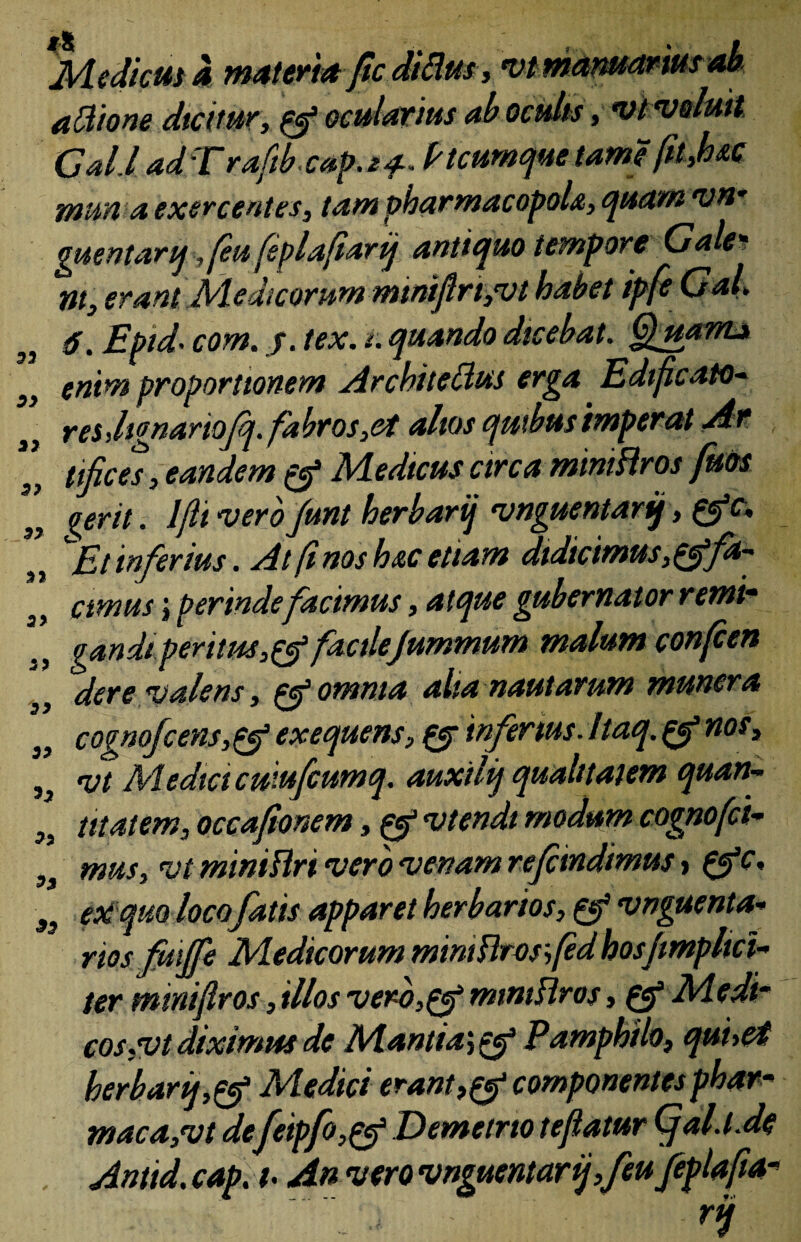 18
Medicus à materia sic dictus, vt manuarius ab
actione dicitur, & ocularius ab oculis, vt voluit
Gal.l ad Trasib. cap. 24. Vtcumque tamē sit, hæc
mun a exercentes, tam pharmacopolæ, quam vn-
guentarij, seu seplasiarij antiquo tempore Gale-
ni, erant Medicorum ministri, vt habet ipse Gal.
„ 6. Epid. com. 5. tex. 1. quando dicebat. Quam
„ enim proportionem Architectus erga Edificato-
„ res, lignariosq. fabros, et alios quibus imperat Ar
„ tifices, eandem & Medicus circa ministros suos
„ gerit. Isti verò sunt herbarij vnguentarij, &c.
„ Et inferius. At si nos hæc etiam didicimus, & fa-
„ cimus; perinde facimus, atque gubernator remi-
„ gandi peritus, & facile summum malum conscen
„ dere valens, & omnia alia nautarum munera
„ cognoscens, & exequens, & inferius. Itaq. & nos,
„ vt Medici cuiuscumq. auxilij qualitatem quan-
„ titatem, occasionem, & vtendi modum cognosci-
„ mus, vt ministri verò venam rescindimus, &c.
„ ex quo loco satis apparet herbarios, & vnguenta-
rios fuisse Medicorum ministros; sed hos simplici-
ter ministros, illos verò, & ministros, & Medi-
cos, vt diximus de Mantia; & Pamphilo, qui, et
herbarij, & Medici erant, & componentes phar-
maca, vt de seipso, & Demetrio testatur Gal. 1. de
Antid. cap. 1. An vero vnguentarij, seu seplasia-
rij